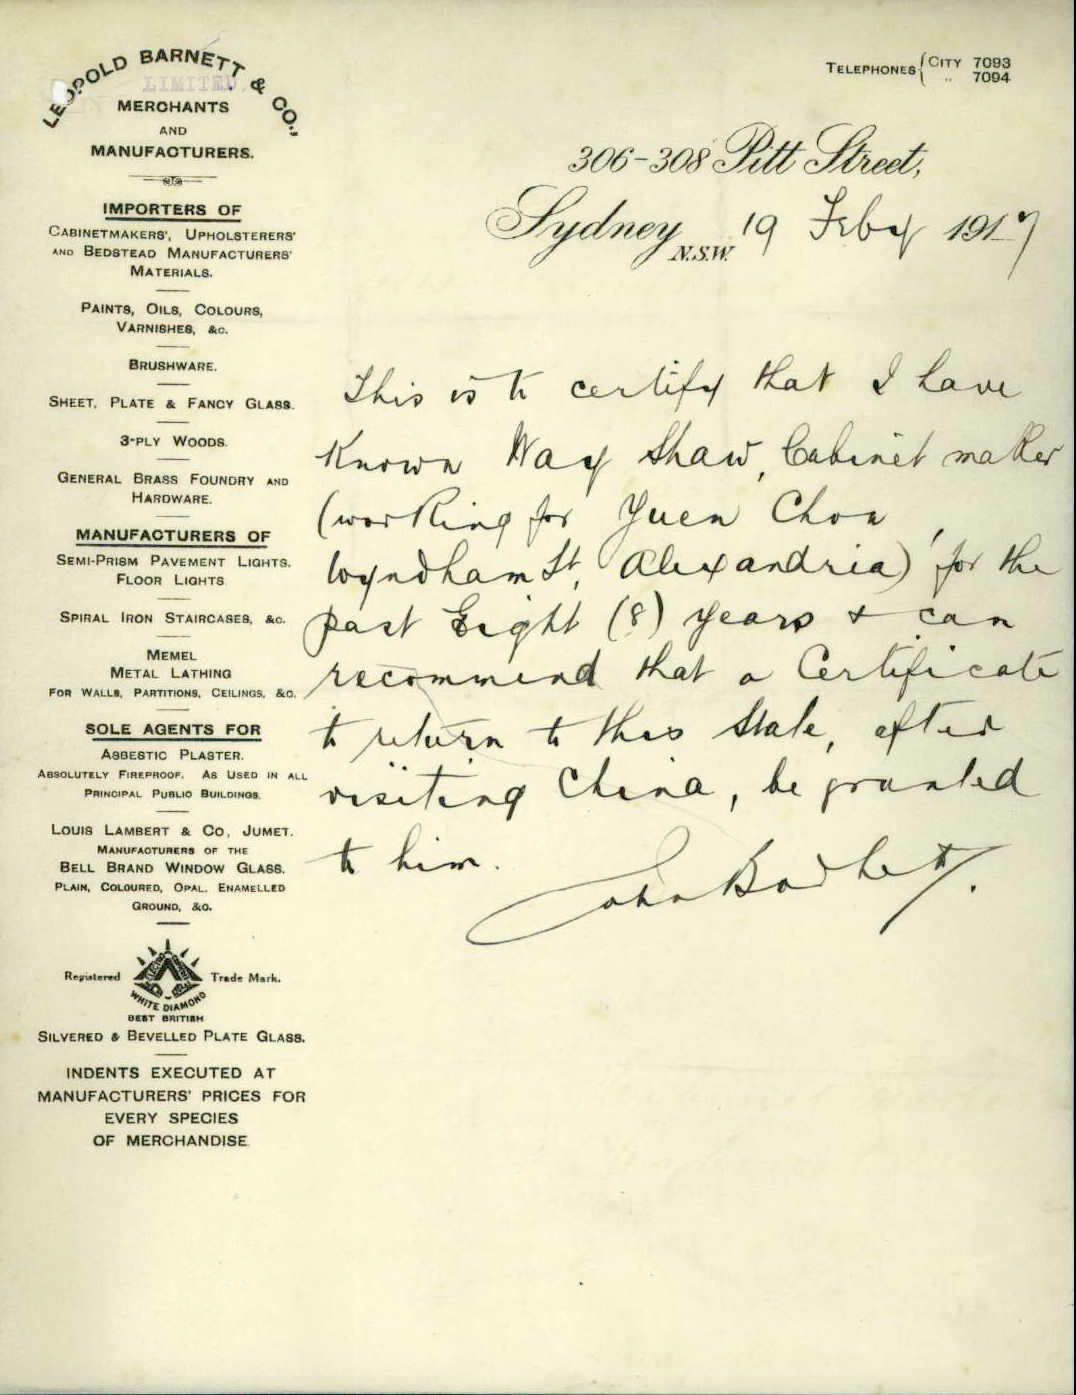 LEOPOLD BARNETT & CO.,
LIMITED.
MERCHANTS
AND
MANUFACTURERS.
IMPORTERS OF
CABINETMAKERS', UPHOLSTERERS'
AND BEDSTEAD MANUFACTURERS'
MATERIALS.
PAINTS, OILS, COLOURS,
VARNISHES, &C.
BRUSHWARE.
SHEET, PLATE & FANCY GLASS.
3-PLY WOODS.
GENERAL BRASS FOUNDRY AND
HARDWARE.
MANUFACTURERS OF
SEMI-PRISM PAVEMENT LIGHTS.
FLOOR LIGHTS
SPIRAL IRON STAIRCASES, &C.
MEMEL
METAL LATHING
FOR WALLS, PARTITIONS, CEILINGS, &C.
SOLE AGENTS FOR
ASBESTIC PLASTER.
ABSOLUTELY FIREPROOF. AS USED IN ALL
PRINCIPAL PUBLIC BUILDINGS.
LOUIS LAMBERT & CO, JUMET.
MANUFACTURERS OF THE
BELL BRAND WINDOW GLASS.
PLAIN, COLOURED, OPAL, ENAMELLED
GROUND, &C.
Registered Trade Mark.
WHITE DIAMOND
BEST BRITISH
SILVERED & BEVELLED PLATE GLASS.
INDENTS EXECUTED AT
MANUFACTURERS' PRICES FOR
EVERY SPECIES
OF MERCHANDISE
TELEPHONES { CITY 7093
" 7094
306-308 Pitt Street,
Sydney N.S.W. 19 Feby 1917
This is to certify that I have
known Way Shaw, Cabinet maker
(working for Yuen Chon,
Wyndham St, Alexandria) for the
past Eight (8) years & can
recommend that a Certificate
to return to this State, after
visiting China, be granted
to him.
John